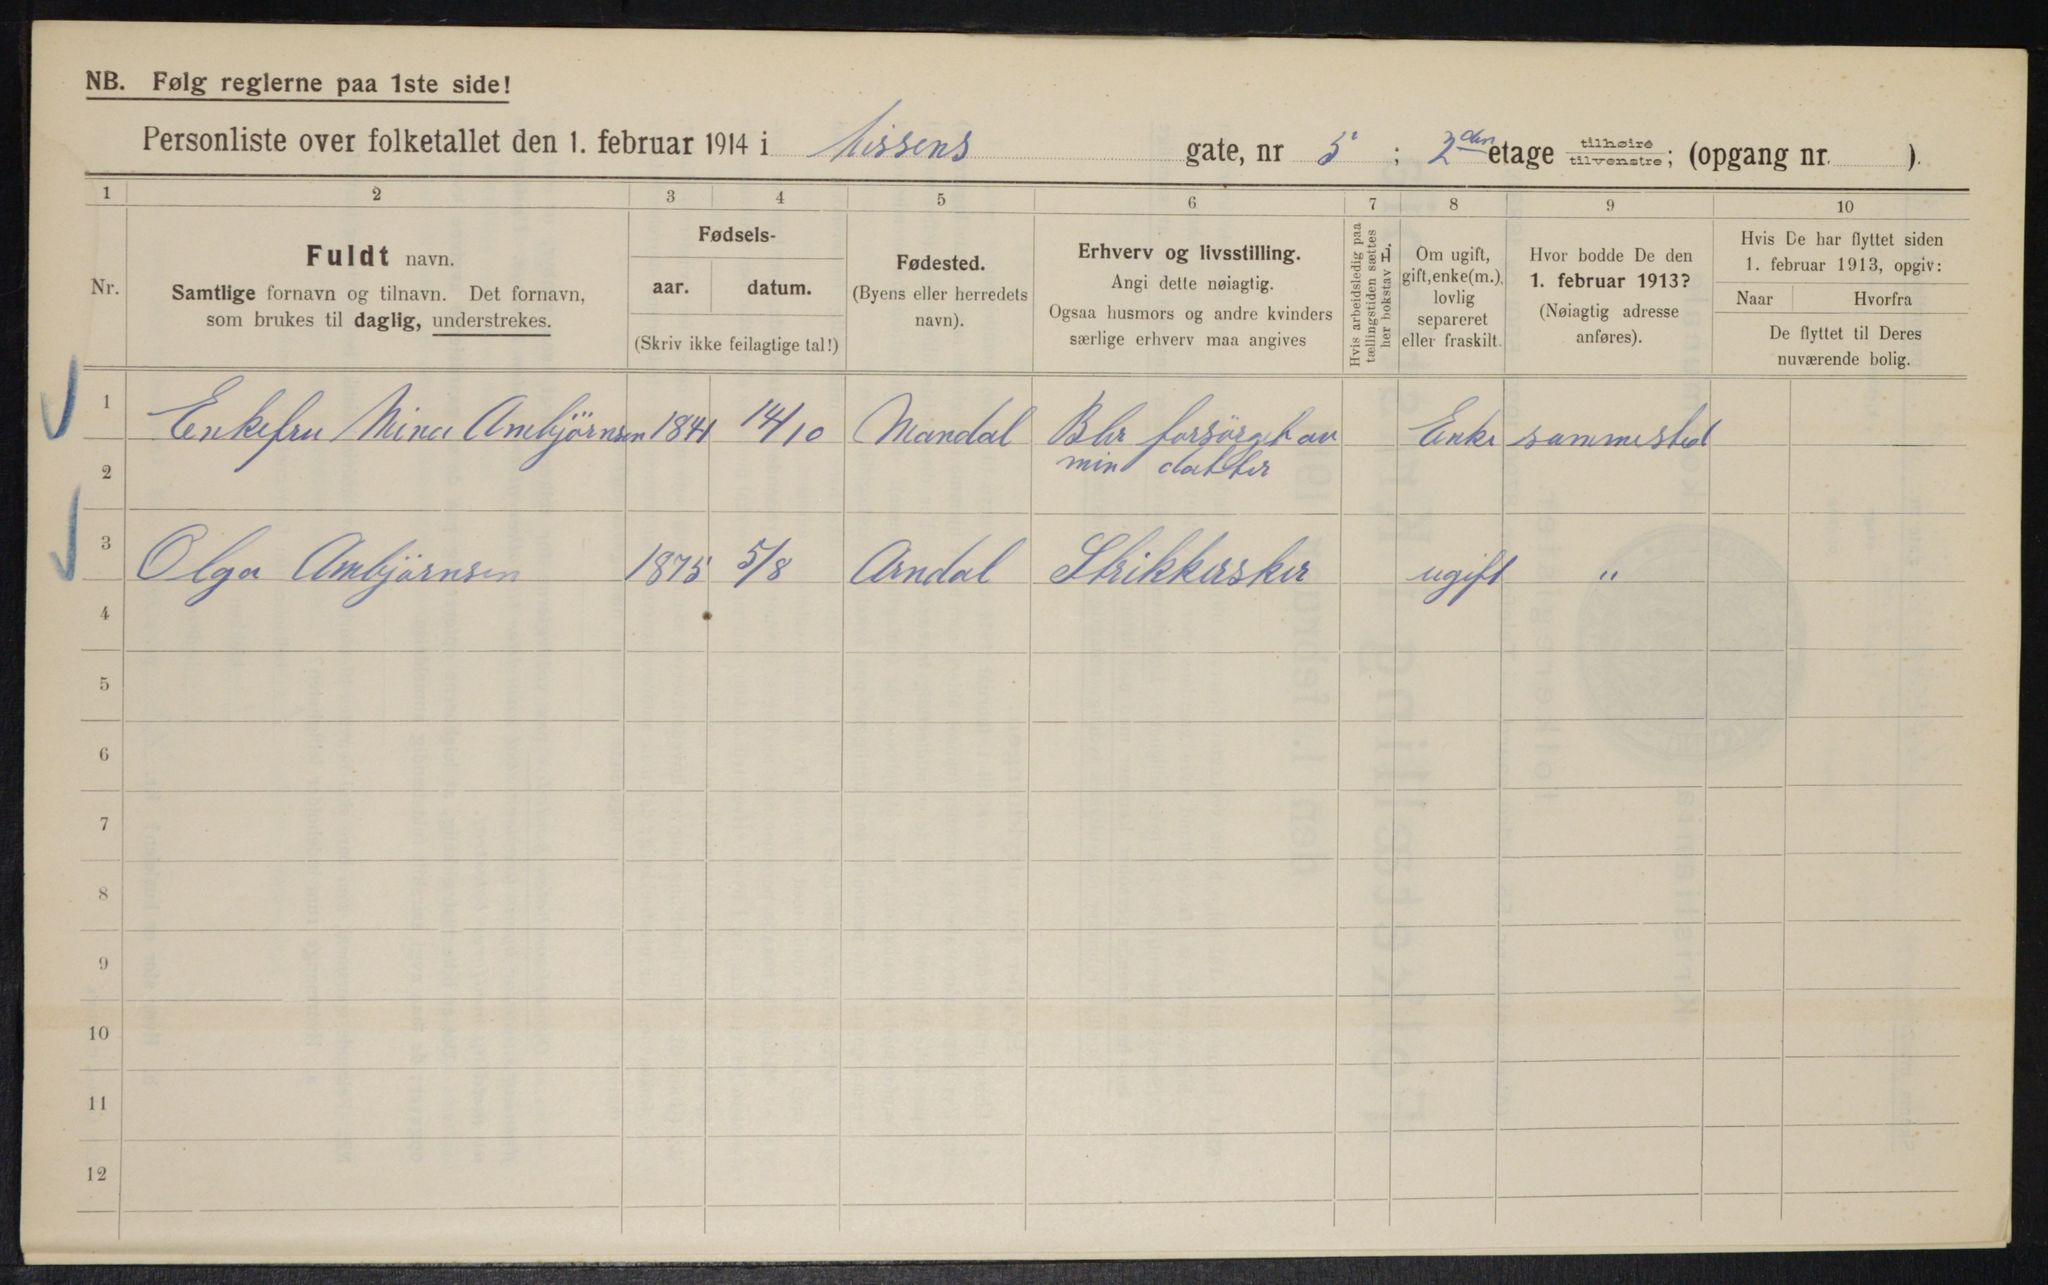 NB. Følg reglerne paa 1ste side!
Personliste over folketallet den 1. februar 1914 i Nissens gate, nr 5 ; 2den etage tilhøire tilvenstre; (opgang nr. ).
1 2 3 4 5 6 7 8 9 10
Nr.
Fuldt navn.
Samtlige fornavn og tilnavn. Det fornavn,
som brukes til daglig, understrekes.
Fødsels-
aar. datum.
(Skriv ikke feilagtige tal!)
Fødested.
(Byens eller herredets
navn).
Erhverv og livsstilling.
Angi dette nøiagtig.
Ogsaa husmors og andre kvinders
særlige erhverv maa angives
Hvis arbeidsledig paa
tællingstiden sættes
her bokstav L.
Om ugift,
gift, enke(m.),
lovlig
separeret
eller fraskilt.
Hvor bodde De den
1. februar 1913?
(Nøiagtig adresse
anføres).
Hvis De har flyttet siden
1. februar 1913, opgiv:
Naar Hvorfra
De flyttet til Deres
nuværende bolig.
1 Enkefru Mina Ambjørnsen 1841 14/10 Mandal Blir forsörget av Enke sammested
2 min datter
3 Olga Ambjørnsen 1875 5/8 Arndal Strikkerske ugift "
4
5
6
7
8
9
10
11
12